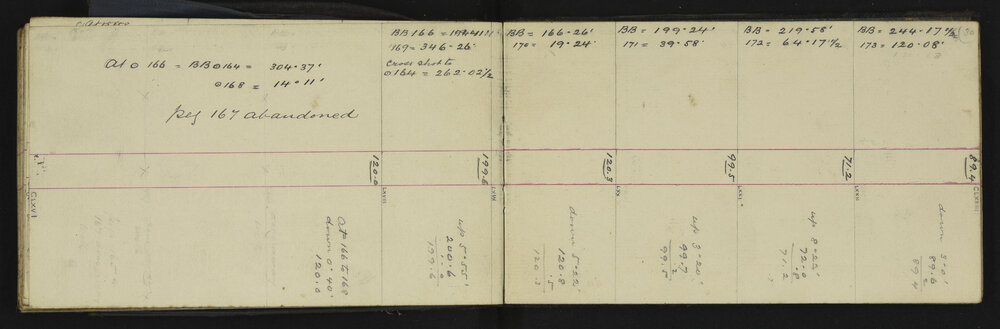 At ⊙ 166 = BB ⊙ 164 = 304·37'
⊙ 168 = 14·11'
peg 167 abandoned
169 = 346·26'
Cross shot to
⊙ 164 = 262·02½
BB = 166·26'
170 = 19·24'
BB = 199·24'
171 = 39·58'
BB = 219·58'
172 = 64·17½
BB = 244·17½
173 = 120·08'
120.0
199.6
120.3
99.5
71.2
89.4
CLXVI
At 166 to 168
down 0·40'
120.0
up 5·55'
200.6
199.6
down 5·22'
120.8
.5
120.3
up 3·20'
99.7
.2
99.5
up 8·22'
72.0
.8
71.2
down 3·0'
89.6
.2
89.4